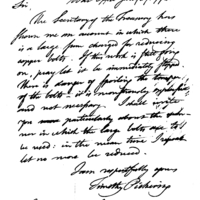 Sir,
The Secretary of the Treasury has
shown me an account in which there
is a large sum charged for reducing
copper bolts. If this work is
on, pray let it be immediately stopped.
There is danger of spoiling the temper
of the bolts - it is monstrously expensive,
and not necessary. I shall write
you more particularly about the
in which the large bolts are to
be used: in the mean time I repeat
let no more be reduced.
I am respectfully yours
Timothy Pickering